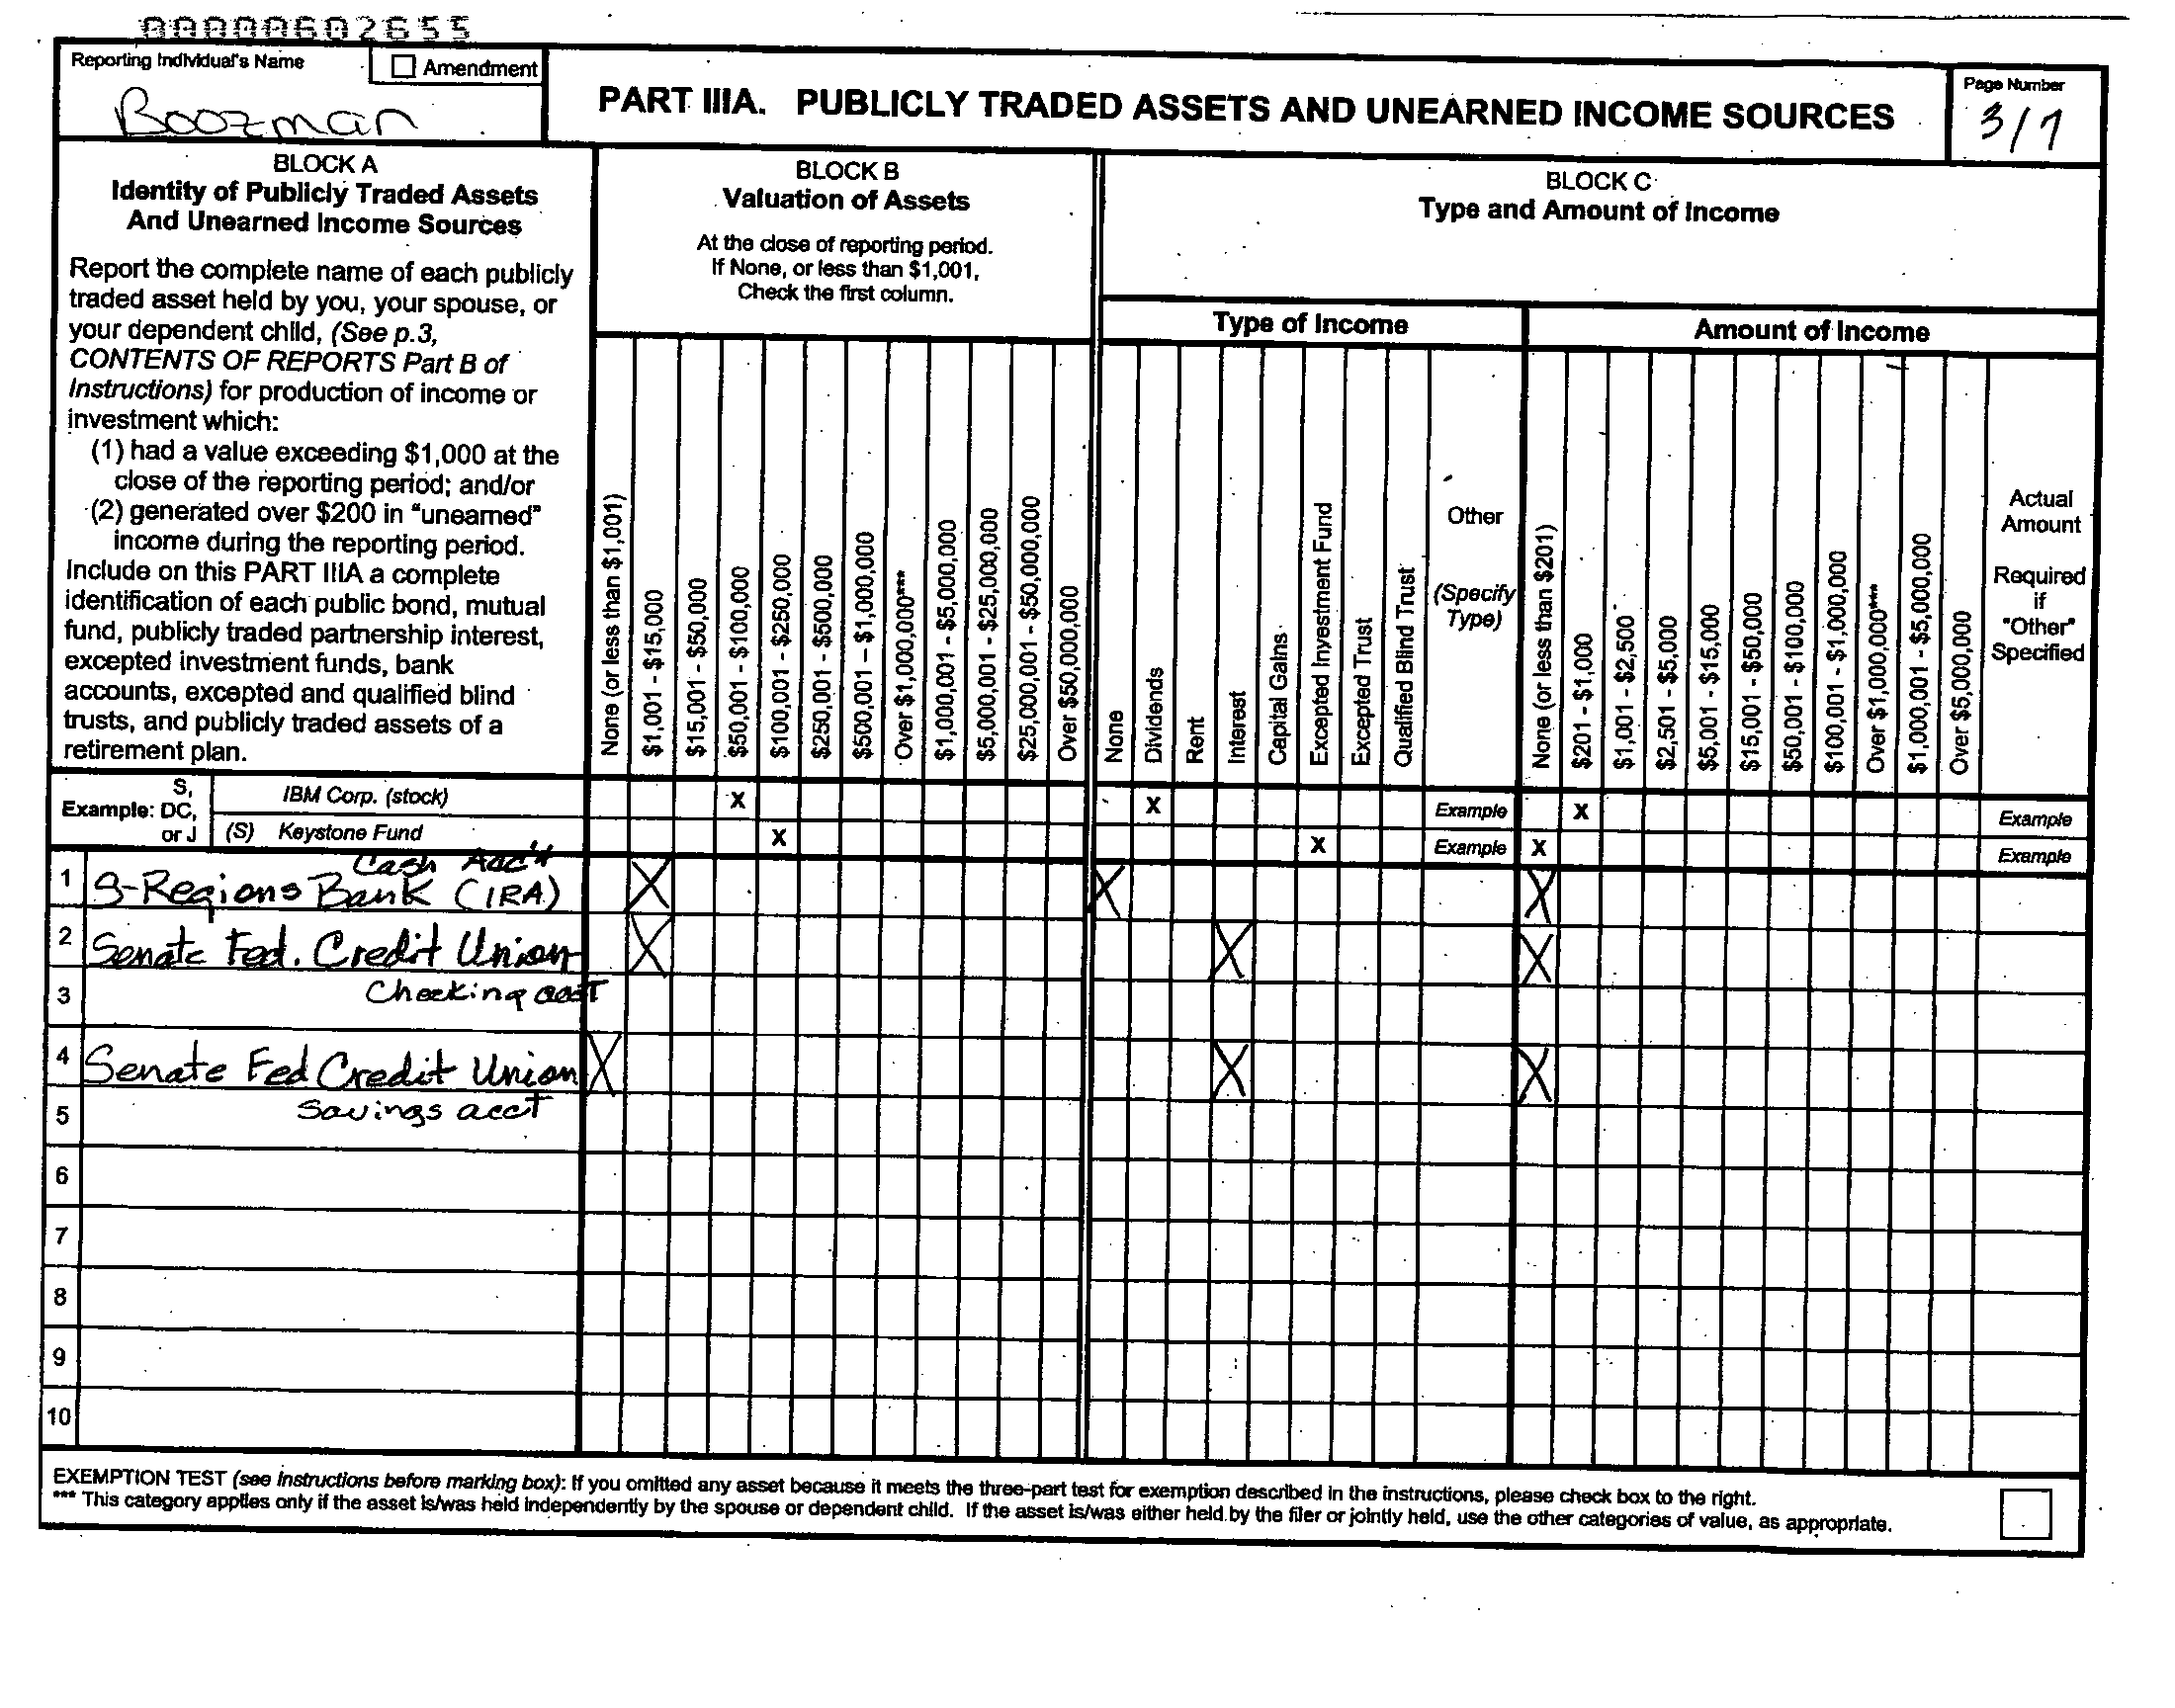 00000602655
Reporting Individual's Name
☐ Amendment
Boozman
PART IIIA. PUBLICLY TRADED ASSETS AND UNEARNED INCOME SOURCES
Page Number
3/7
BLOCK A
Identity of Publicly Traded Assets
And Unearned Income Sources
Report the complete name of each publicly
traded asset held by you, your spouse, or
your dependent child, (See p.3,
CONTENTS OF REPORTS Part B of
Instructions) for production of income or
investment which:
(1) had a value exceeding $1,000 at the
close of the reporting period; and/or
(2) generated over $200 in "unearned"
income during the reporting period.
Include on this PART IIIA a complete
identification of each public bond, mutual
fund, publicly traded partnership interest,
excepted investment funds, bank
accounts, excepted and qualified blind
trusts, and publicly traded assets of a
retirement plan.
BLOCK B
Valuation of Assets
At the close of reporting period.
If None, or less than $1,001,
Check the first column.
None (or less than $1,001)
$1,001 - $15,000
$15,001 - $50,000
$50,001 - $100,000
$100,001 - $250,000
$250,001 - $500,000
$500,001 – $1,000,000
Over $1,000,000***
$1,000,001 - $5,000,000
$5,000,001 - $25,000,000
$25,000,001 - $50,000,000
Over $50,000,000
BLOCK C
Type and Amount of Income
Type of Income
None
Dividends
Rent
Interest
Capital Gains
Excepted Investment Fund
Excepted Trust
Qualified Blind Trust
Other
(Specify
Type)
Amount of Income
None (or less than $201)
$201 - $1,000
$1,001 - $2,500
$2,501 - $5,000
$5,001 - $15,000
$15,001 - $50,000
$50,001 - $100,000
$100,001 - $1,000,000
Over $1,000,000***
$1,000,001 - $5,000,000
Over $5,000,000
Actual
Amount
Required
if
"Other"
Specified
Example: S, DC, or J
IBM Corp. (stock) X X Example X Example
(S) Keystone Fund X X Example X Example
Cash Acc't
1 S-Regions Bank (IRA) X X X
2 Senate Fed. Credit Union X X X
3 Checking acct
4 Senate Fed Credit Union X X X
5 Savings acct
6
7
8
9
10
EXEMPTION TEST (see instructions before marking box): If you omitted any asset because it meets the three-part test for exemption described in the instructions, please check box to the right.
*** This category applies only if the asset is/was held independently by the spouse or dependent child. If the asset is/was either held by the filer or jointly held, use the other categories of value, as appropriate.